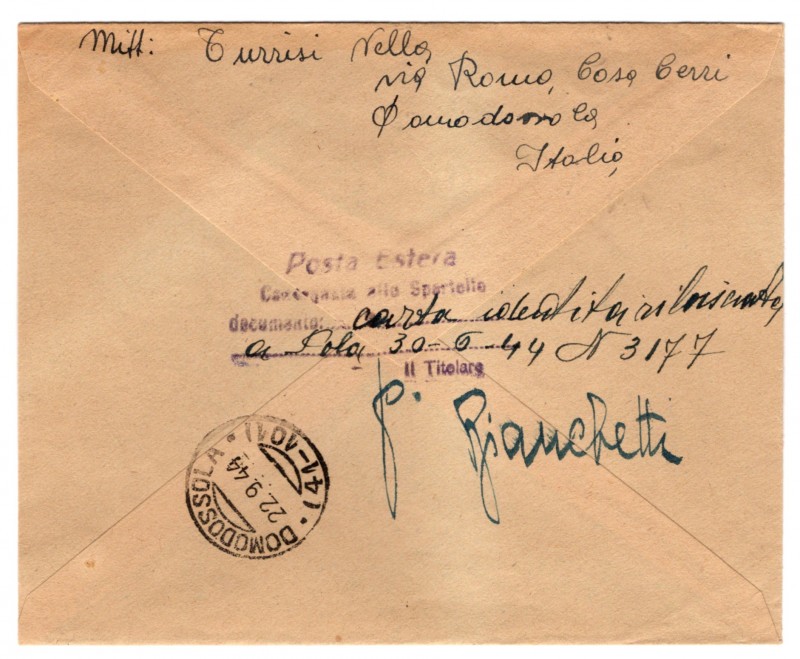 Mitt: Turrisi Nella
via Roma, Casa Cerri
Domodossola
Italia
Posta Estera
Consegnata allo Sportello
documento: carta identità rilasciata
a Pola 30-6-44 N 3177
Il Titolare
p. Bianchetti
DOMODOSSOLA
(41-1011)
22.9.44